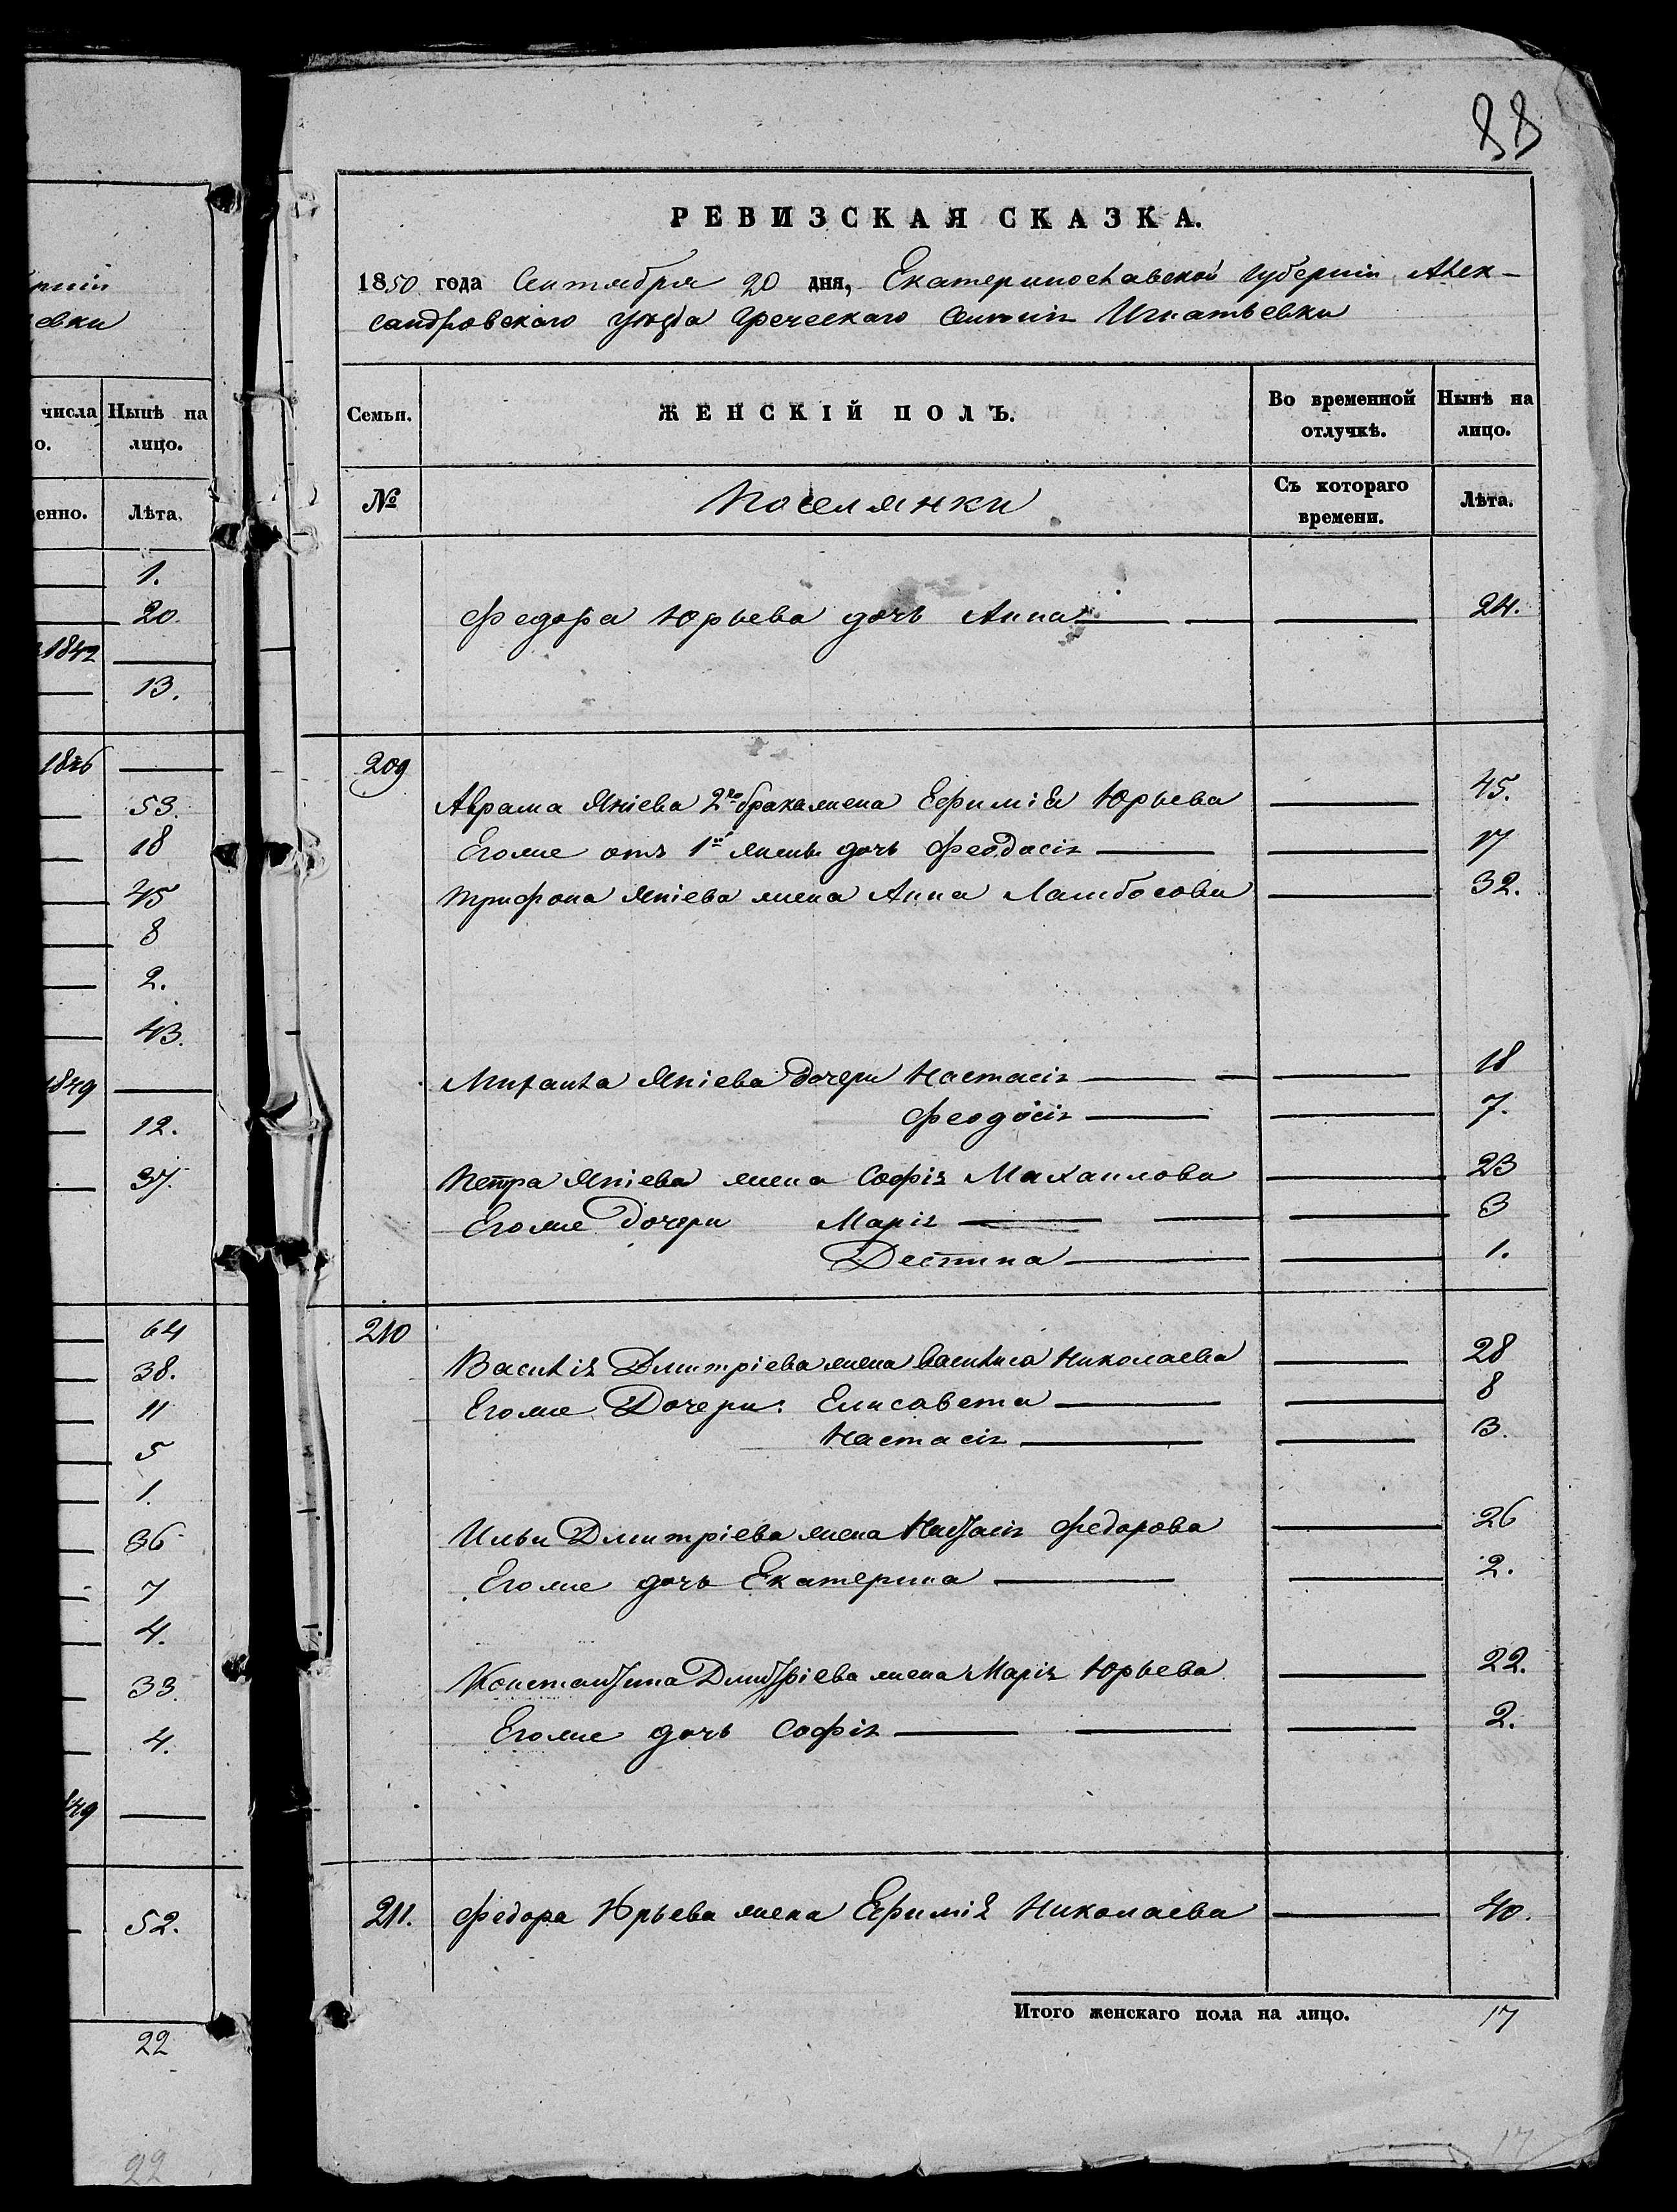 рніи
евки
числа Нынѣ на
о. лицо.
енно. Лѣта.
1.
20.
1842
13.
1846
53.
18
45
8
2.
43.
1849
12.
37.
64
38.
11
5
1.
36
7
4.
33.
4.
49
52.
22
22
88
РЕВИЗСКАЯ СКАЗКА.
1850 года Сентября 20 дня, Екатеринославской губерніи Алек-
сандровскаго уѣзда Греческаго Селенія Игнатьевки
Семьи. ЖЕНСКІЙ ПОЛЪ. Во временной отлучкѣ. Нынѣ на лицо.
№ Поселянки Съ котораго времени. Лѣта.
Федора Юрьева дочь Анна 24.
209
Аврама Яніева 2го брака жена Ефимія Юрьева 45.
Егоже отъ 1й жены дочь Феодосія 17
Трифона Яніева жена Анна Ламбосова 32.
Михаила Яніева дочери Настасія 18
Феодосія 7.
Петра Яніева жена Софія Махаилова 23
Егоже дочери Марія 3
Деспина 1.
210
Василія Дмитріева жена Василиса Николаева 28
Егоже Дочери: Елисавета 8
Настасія 3.
Ильи Дмитріева жена Настасія Федорова 26
Егоже дочь Екатерина 2.
Константина Дмитріева жена Марія Юрьева 22.
Егоже дочь Софія 2.
211. Федора Юрьева жена Ефимія Николаева 40.
Итого женскаго пола на лицо. 17
17